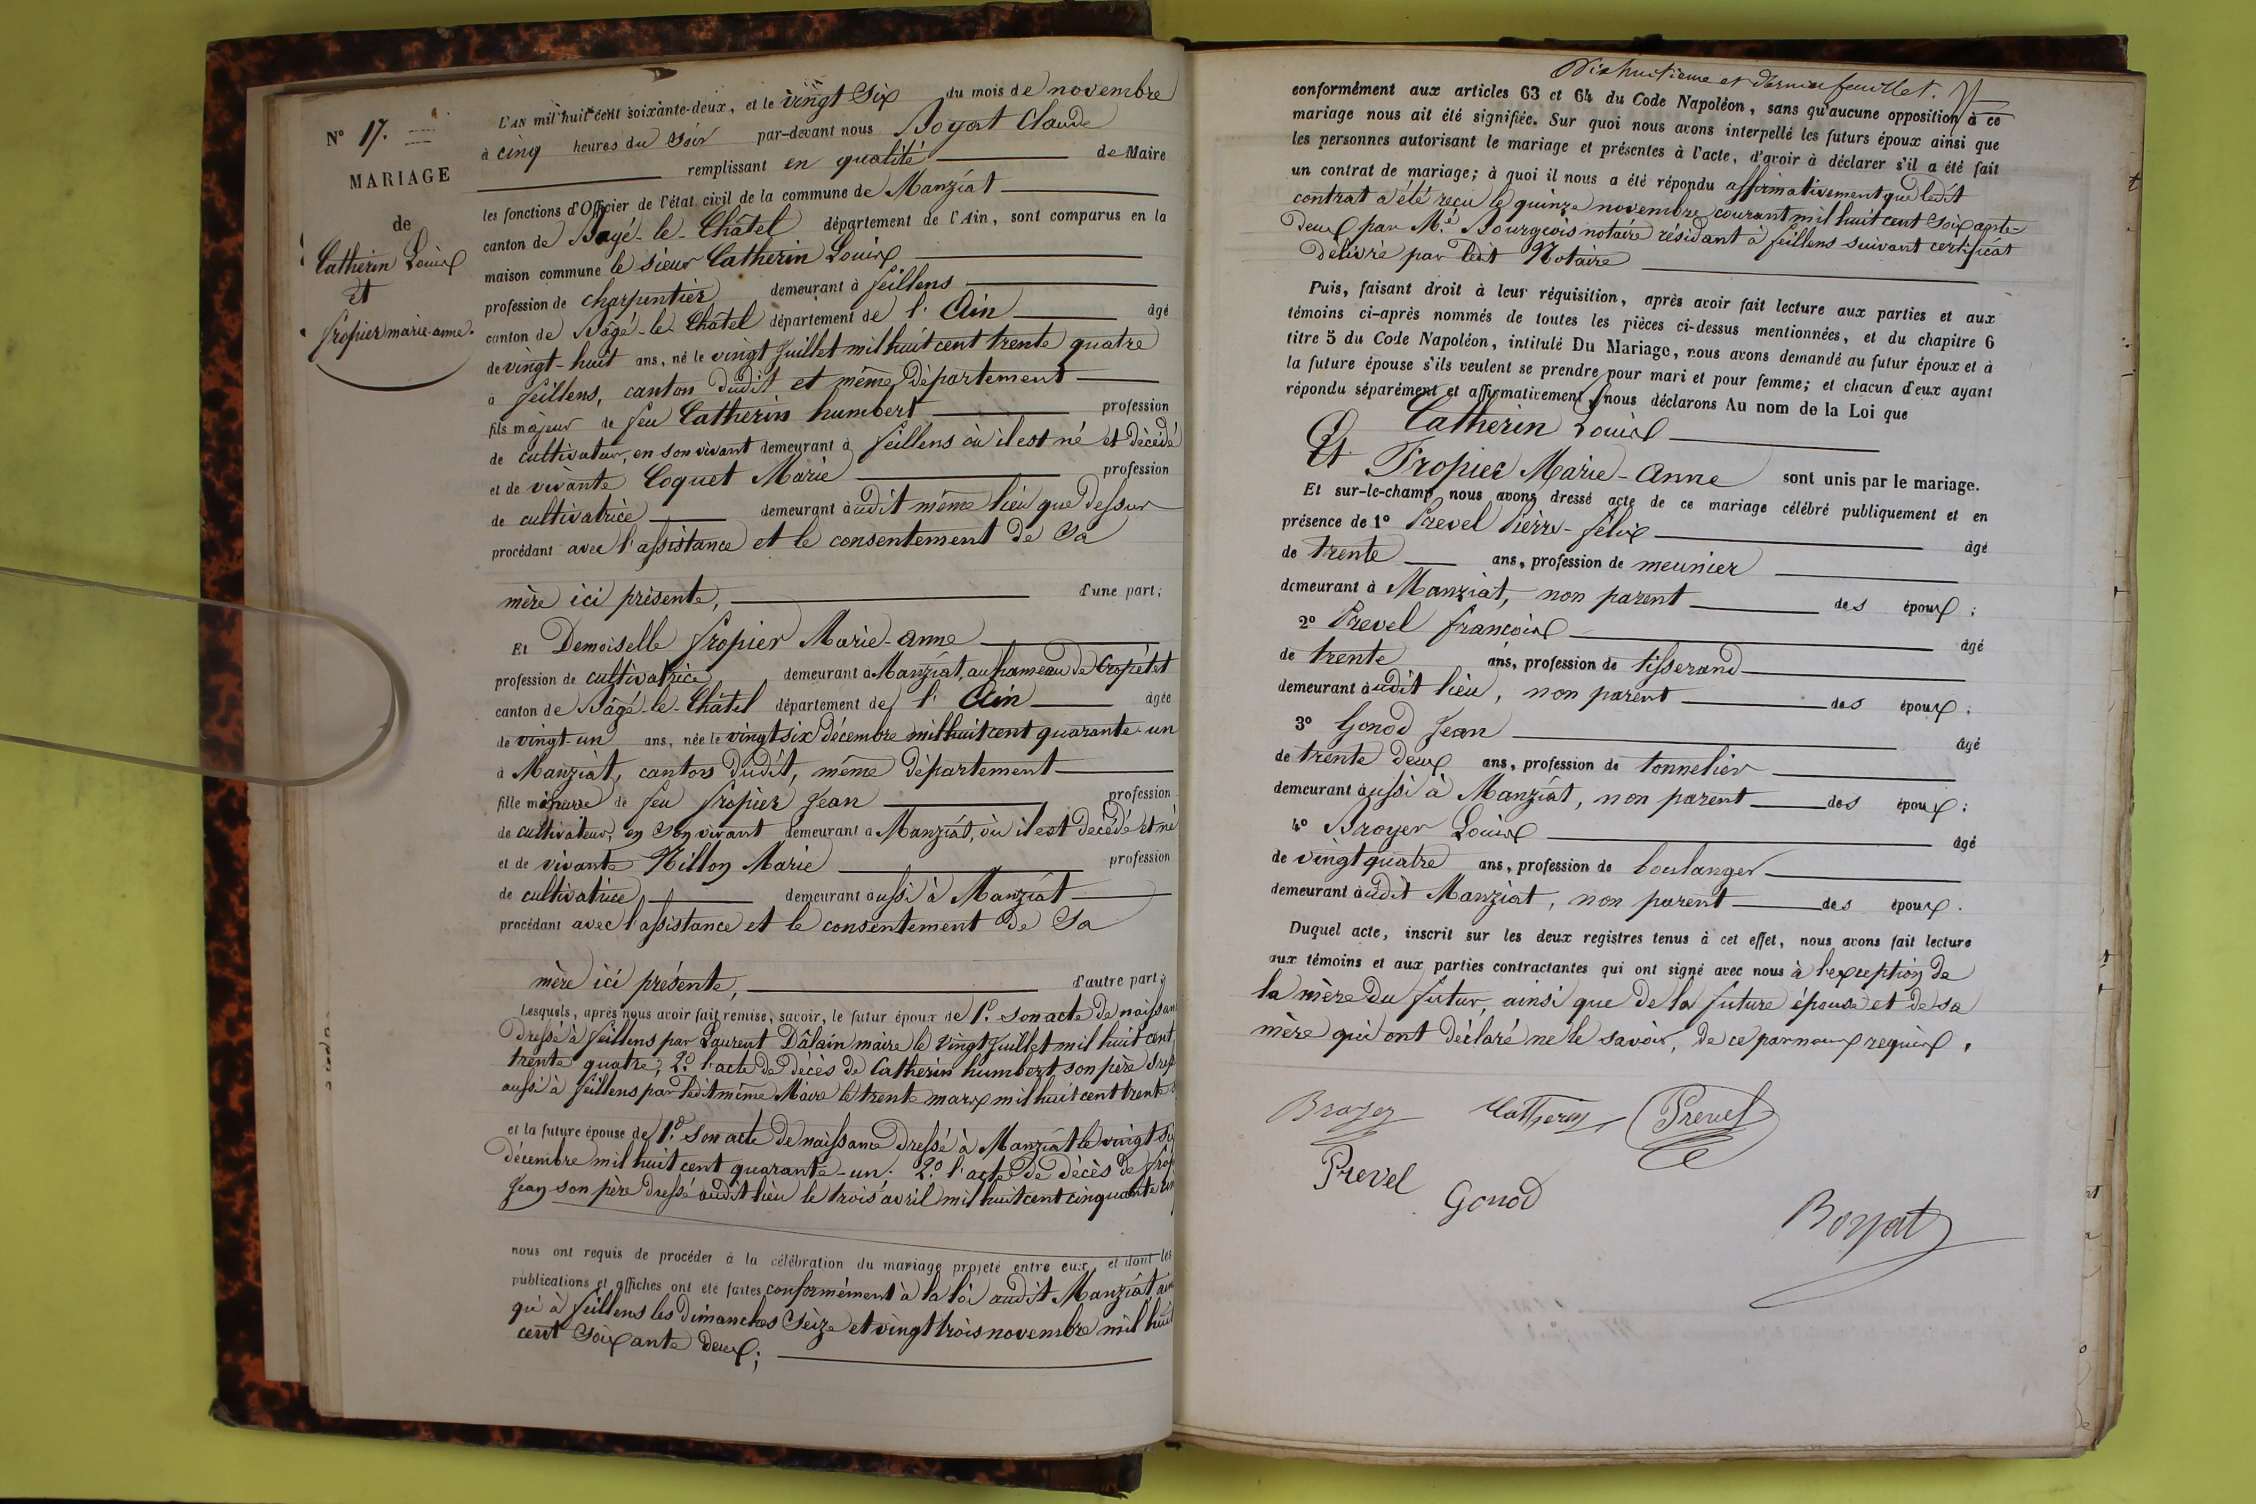 N° 17.
MARIAGE
de
Catherin Louis
et
fropier marie-anne.
L'AN mil huit cent soixante-deux, et le vingt six du mois de novembre
à cinq heures du soir par-devant nous Boyat Claude
remplissant en qualité de Maire
les fonctions d'Officier de l'état civil de la commune de Manziat
canton de Bagé-le-Châtel département de l'Ain, sont comparus en la
maison commune le sieur Catherin Louis
profession de charpentier demeurant à feillens
canton de Bâgé-le-Châtel département de l'Ain âgé
de vingt-huit ans, né le vingt juillet mil huit cent trente quatre
à feillens, canton dudit et même département
fils majeur de feu Catherin humbert profession
de cultivateur, en son vivant demeurant à feillens où il est né et décédé
et de vivante Coquet Marie profession
de cultivatrice demeurant audit même lieu que dessus
procédant avec l'assistance et le consentement de sa
mère ici présente, d'une part;
Et Demoiselle fropier Marie-anne
profession de cultivatrice demeurant à Manziat, au hameau de Cropétet
canton de Bâgé-le-Châtel département de l'Ain âgée
de vingt-un ans, née le vingt six décembre mil huit cent quarante-un
à Manziat, canton dudit, même département
fille majeure de feu fropier Jean profession
de cultivateur, en son vivant demeurant à Manziat, où il est décédé et né
et de vivante Nillon Marie profession
de cultivatrice demeurant aussi à Manziat
procédant avec l'assistance et le consentement de sa
mère ici présente, d'autre part;
Lesquels, après nous avoir fait remise, savoir, le futur époux de 1°. son acte de naissan
dressé à feillens par Laurent Dâlain maire le vingt juillet mil huit cent
trente quatre; 2°. l'acte de décès de Catherin humbert son père dress
aussi à feillens par ledit même Maire le trente mars mil huit cent trente
et la future épouse de 1°. son acte de naissance dressé à Manziat le vingt si
décembre mil huit cent quarante-un. 2°. l'acte de décès de frop
Jean son père dressé audit lieu le trois avril mil huit cent cinquante un
nous ont requis de procéder à la célébration du mariage projeté entre eux, et dont les
publications et affiches ont été faites conformément à la loi audit Manziat ain
qu'à feillens les dimanches seize et vingt trois novembre mil huit
cent soixante deux;
Dixhuitieme et dernier feuillet.
conformément aux articles 63 et 64 du Code Napoléon, sans qu'aucune opposition à ce
mariage nous ait été signifiée. Sur quoi nous avons interpellé les futurs époux ainsi que
les personnes autorisant le mariage et présentes à l'acte, d'avoir à déclarer s'il a été fait
un contrat de mariage; à quoi il nous a été répondu affirmativement que ledit
contrat a été reçu le quinze novembre courant mil huit cent soixante-
deux par Me. Bourgeois notaire résidant à feillens suivant certificat
délivré par ledit Notaire
Puis, faisant droit à leur réquisition, après avoir fait lecture aux parties et aux
témoins ci-après nommés de toutes les pièces ci-dessus mentionnées, et du chapitre 6
titre 5 du Code Napoléon, intitulé Du Mariage, nous avons demandé au futur époux et à
la future épouse s'ils veulent se prendre pour mari et pour femme; et chacun d'eux ayant
répondu séparément et affirmativement, nous déclarons Au nom de la Loi que
Catherin Louis
Et Fropier Marie-anne sont unis par le mariage.
Et sur-le-champ nous avons dressé acte de ce mariage célébré publiquement et en
présence de 1° Prevel Pierre-félix âgé
de trente ans, profession de meunier
demeurant à Manziat, non parent des époux;
2° Prevel françois âgé
de trente ans, profession de tisserand
demeurant audit lieu, non parent des époux;
3° Gonod Jean âgé
de trente deux ans, profession de tonnelier
demeurant aussi à Manziat, non parent des époux;
4° Broyer Louis âgé
de vingt quatre ans, profession de boulanger
demeurant audit Manziat, non parent des époux.
Duquel acte, inscrit sur les deux registres tenus à cet effet, nous avons fait lecture
aux témoins et aux parties contractantes qui ont signé avec nous à l'exception de
la mère du futur, ainsi que de la future épouse et de sa
mère qui ont déclaré ne le savoir, de ce par nous requis.
Broyer Catherin Prevel
Prevel Gonod
Boyat